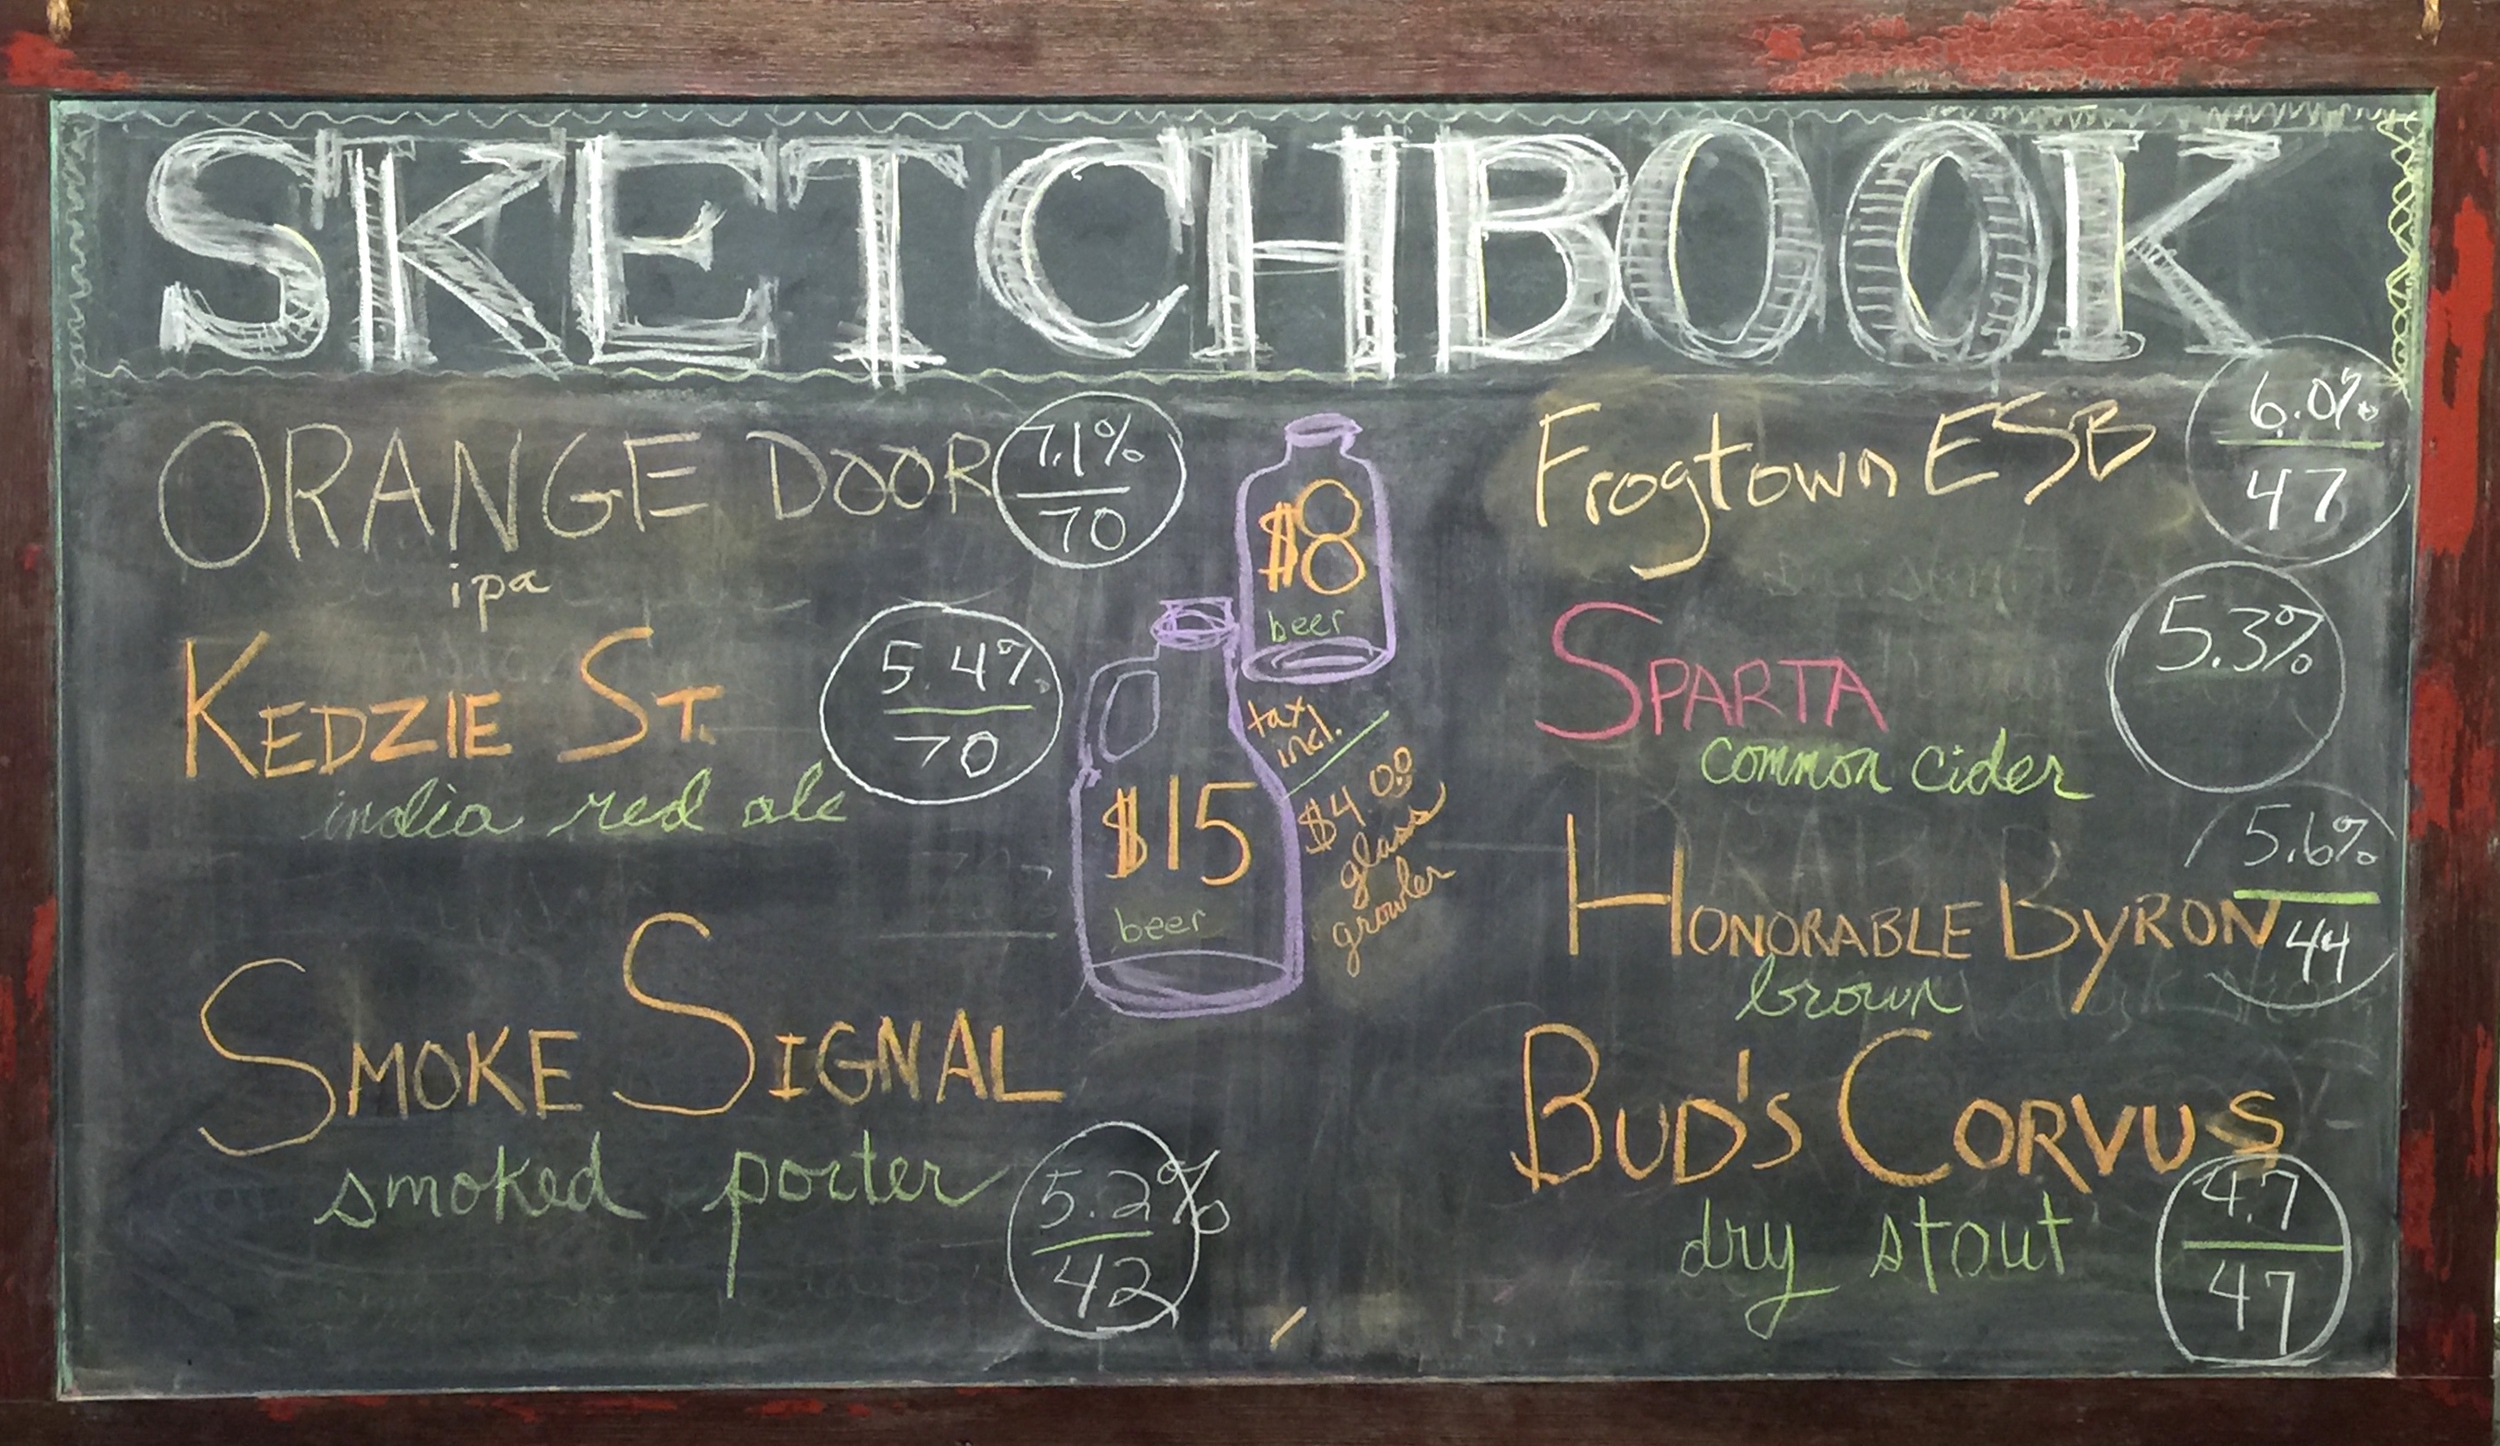 SKETCHBOOK
ORANGE DOOR
7.1%
70
ipa
KEDZIE ST.
5.4%
70
india red ale
SMOKE SIGNAL
smoked porter
5.2%
42
$8
beer
tax
incl.
$4.00
glass
growler
$15
beer
Frogtown ESB
6.0%
47
SPARTA
5.3%
common cider
HONORABLE BYRON
5.6%
44
brown
BUD'S CORVUS
4.7
47
dry stout